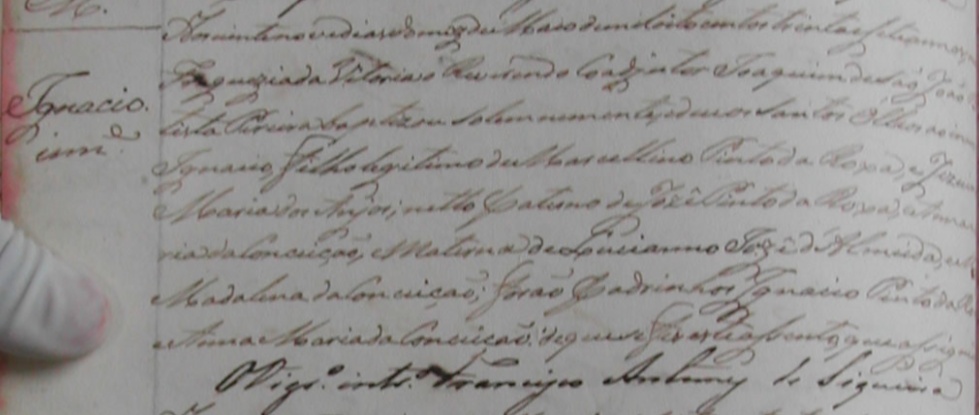 M.
Aos vinte nove dias do mez de Maio de mil oito centos trinta e sette annos
Ignacio.
inn.e
Freguezia da Vitoria o Reverendo Coadjutor Joaquim de São João
tista Pereira baptizou solemnemente, e deu os Santos Olhos ao inn
Ignacio, Filho legitimo de Marcellino Pinto da Roxa, e Jezu
Maria dos Anjos; netto Paterno de Jozê Pinto da Roxa, e Anna
ria da Conceição, e Materna de Lucianno Jozê d'Almeida, e
Madalena da Conceição; forão Padrinhos Ignacio Pinto da R
e Anna Maria da Conceição: de que se fez este assento, que assign
O Vigr.o intr.o Francisco Antunes de Siqueira